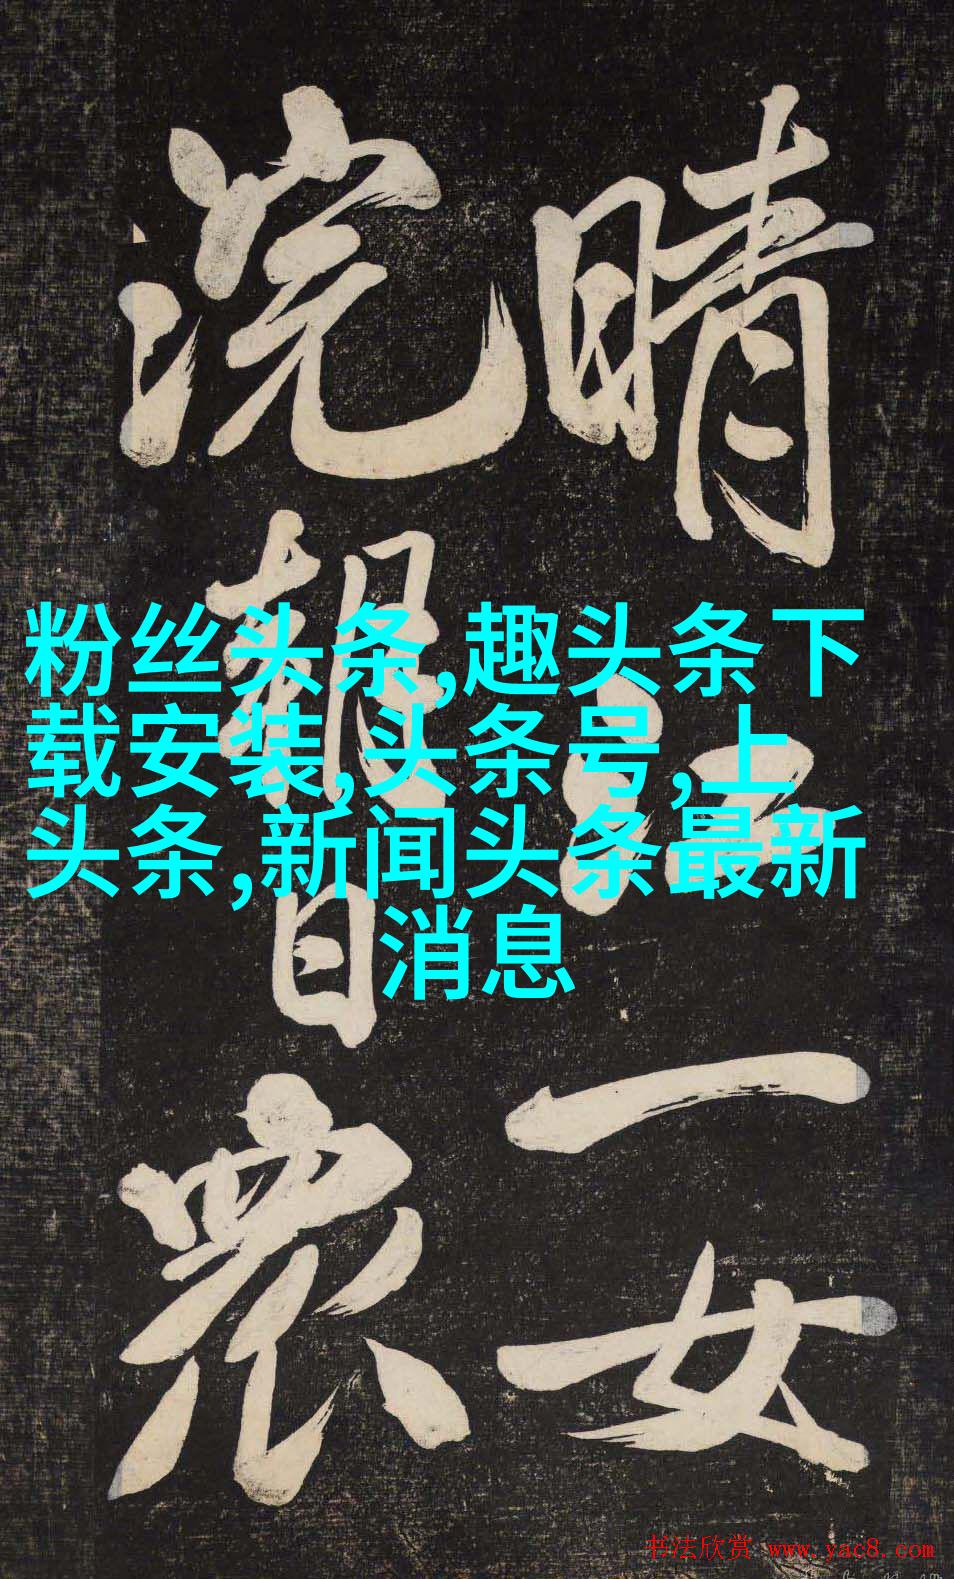 晴江一女
浣
眾
粉丝头条,趣头条下
载安装,头条号,上
头条,新闻头条最新
消息
书法欣赏 www.yac8.com